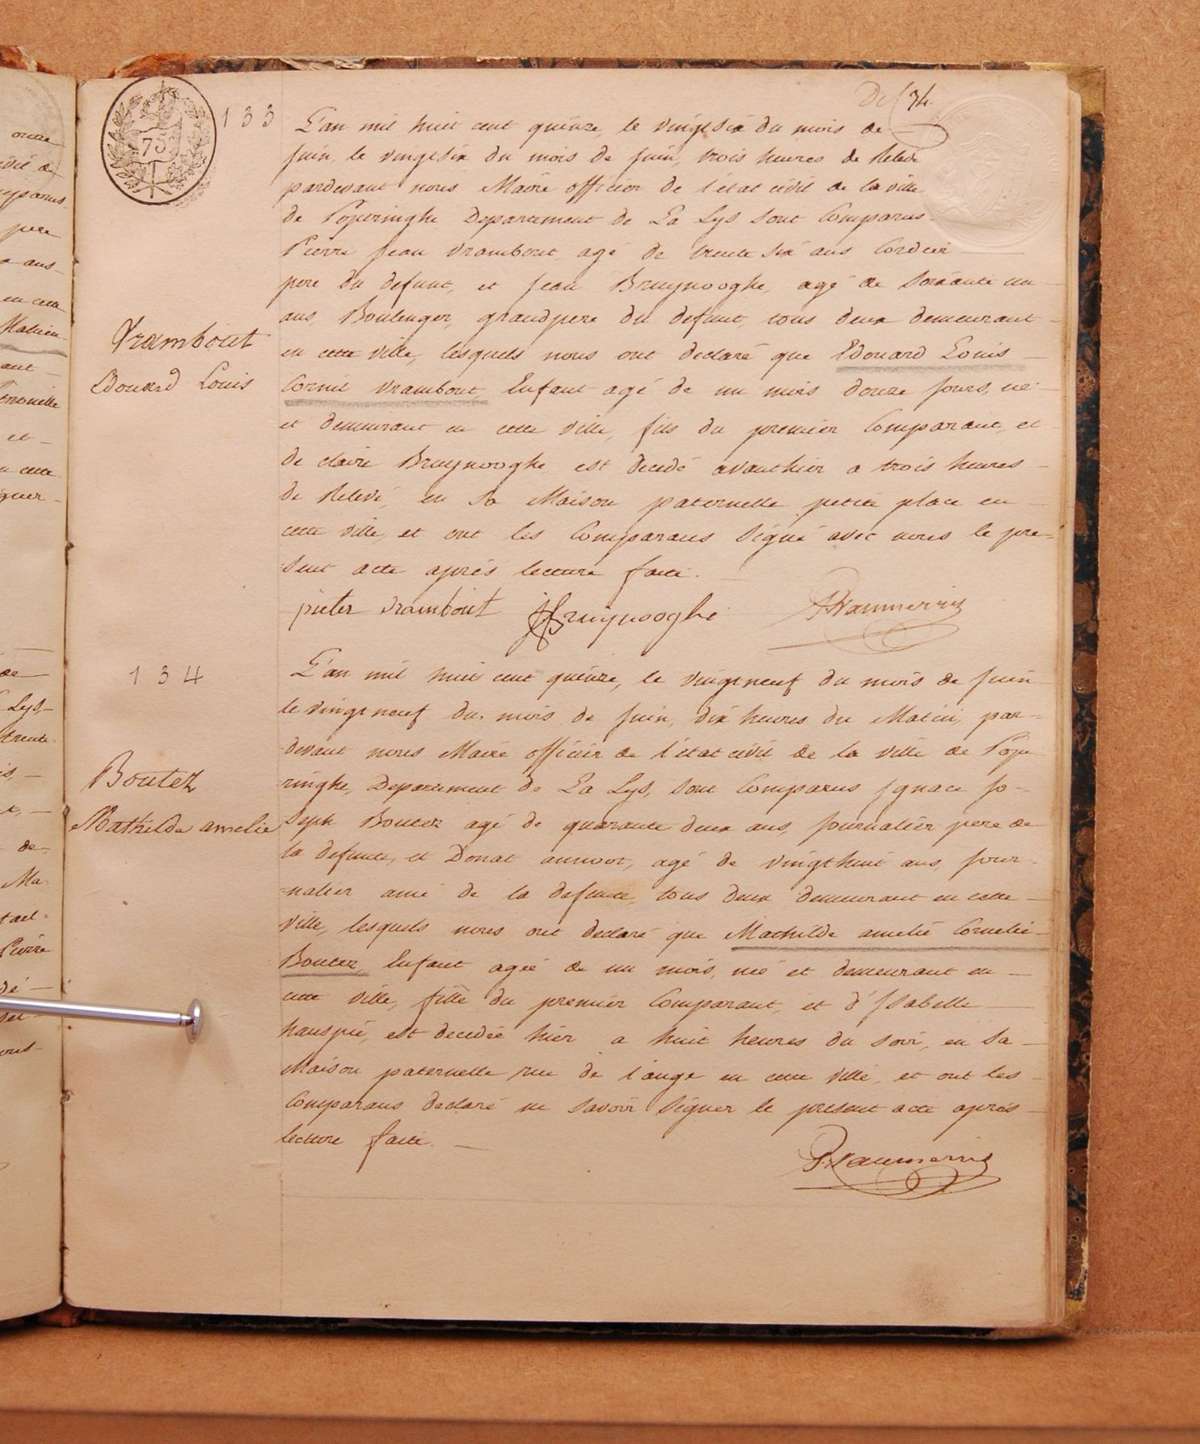 34
75
133
L'an mil huit cent quinze, le vingt six du mois de
juin, le vingt six du mois de juin, trois heures de Relevé
pardevant nous Maire officier de l'état civil de la ville
de Poperinghe Departement de La Lys sont Comparus
Pierre Jean Vrambout, agé de trente six ans Cordier
pere du defunt, et Jean Bruynooghe, agé de soixante un
ans, Boulenger, grandpere du defunt, tous deux demeurant
en cette ville, lesquels nous ont declaré que Edouard Louis
Cornil Vrambout, Enfant agé de un mois douze jours, né
et demeurant en cette ville, fils du premier Comparant, et
de claire Bruynooghe, est decedé avanthier a trois heures
de Relevé, en sa Maison paternelle petite place en
cette ville, et ont les Comparans signé avec nous le pre=
sent acte aprés lecture faite.
Vrambout
Edouard Louis
pieter vrambout JBruynooghe PVanmerris
134
L'an mil huit cent quinze, le vingt neuf du mois de juin
le vingt neuf du mois de juin, dix heures du Matin, par=
devant nous Maire officier de l'état civil de la ville de Pope
ringhe, Departement de La Lys, sont Comparus Ignace Jo=
seph Boutez agé de quarante deux ans, journalier pere de
la defunte, et Donat annoot, agé de vingthuit ans, jour=
nalier ami de la defunte, tous deux demeurant en cette
ville, lesquels nous ont declaré que Mathilde amelie Cornelie
Boutez, Enfant agée de un mois, née et demeurant en
cette ville, fille du premier Comparant, et d'Isabelle
hauspie, est decedée hier a huit heures du soir, en sa
Maison paternelle rue de l'ange en cette ville, et ont les
Comparans declaré ne savoir signer le present acte aprés
lecture faite.
Boutez
Mathilde amelie
PVanmerris